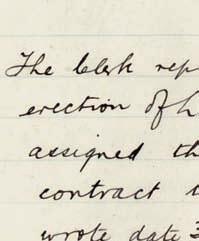 The Clerk rep
erection of h
assigned th
contract
wrote date 3